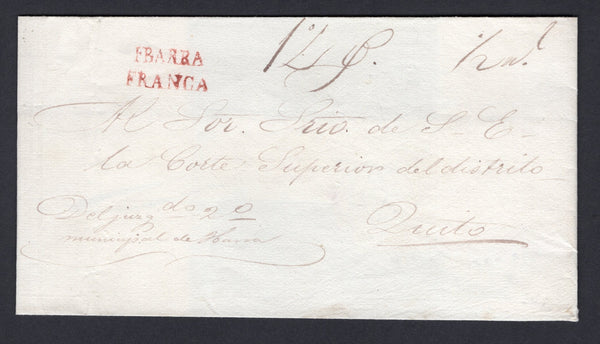 IBARRA
FRANCA
Al Sor. Srio. de S E-
la Corte Superior del distrito
Del juzgdo 2o
municipal de Ibarra
Quito